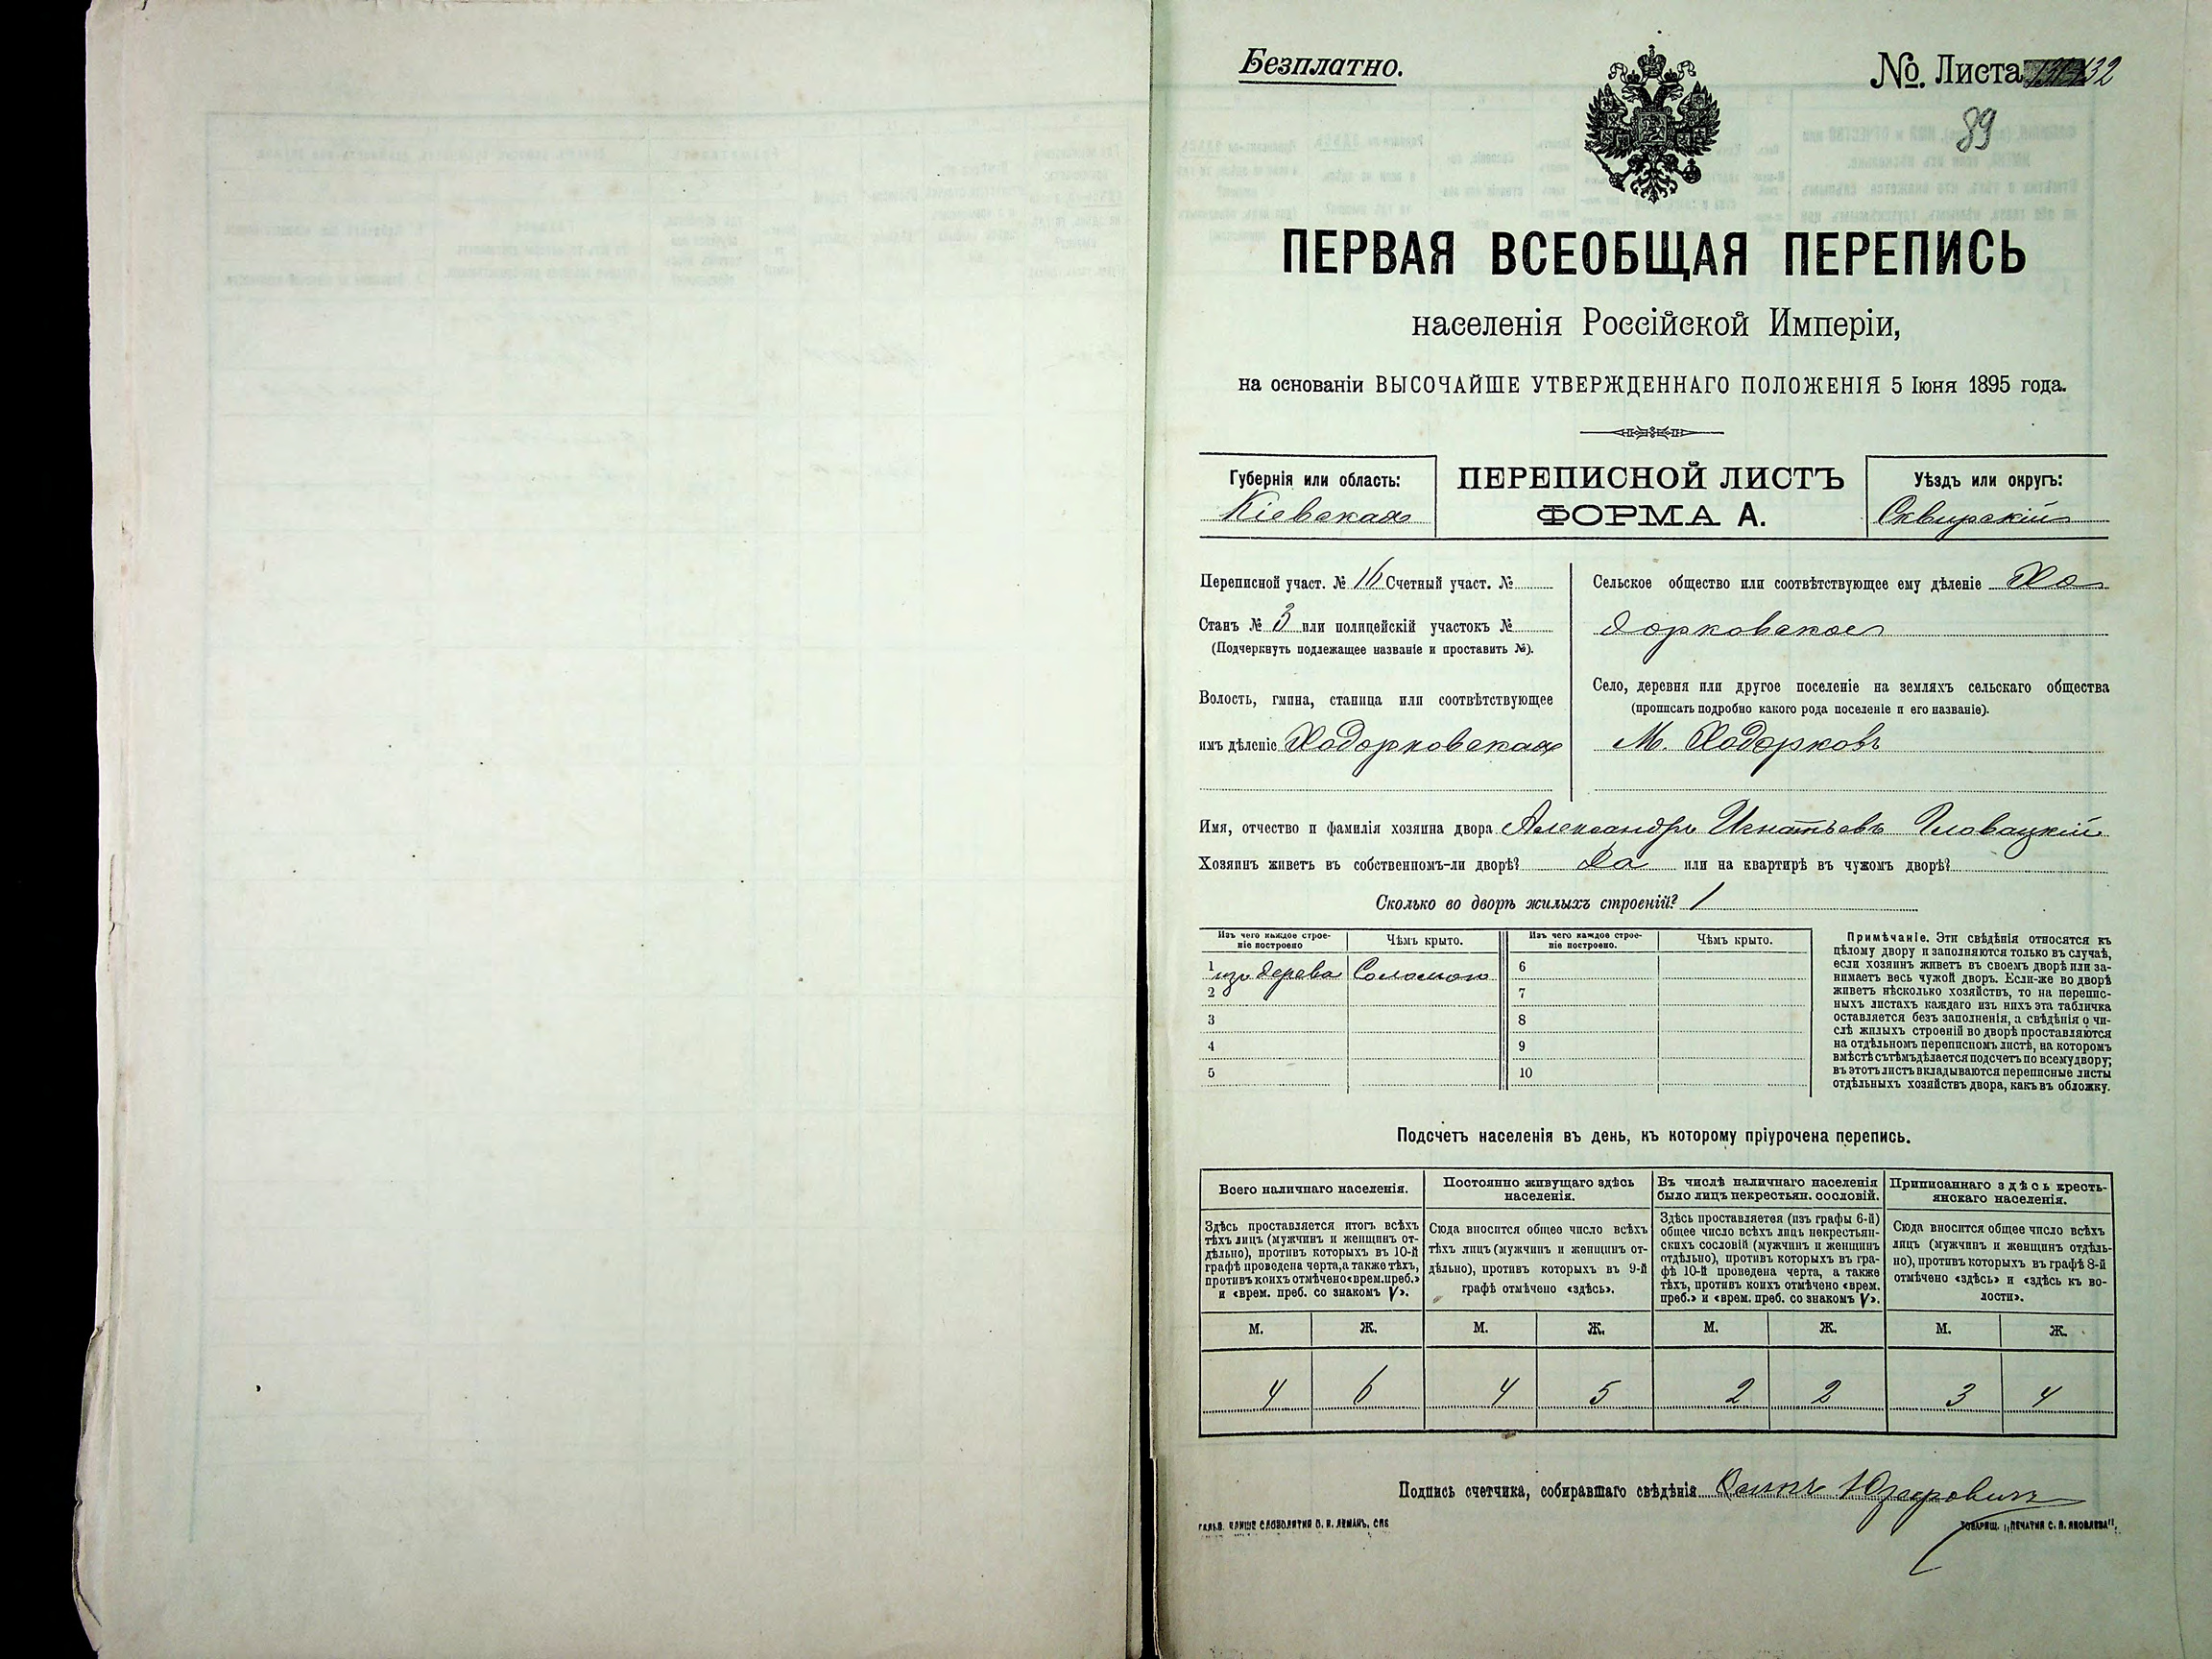 Безплатно.
№. Листа 132
89
ПЕРВАЯ ВСЕОБЩАЯ ПЕРЕПИСЬ
населенія Россійской Имперіи,
на основаніи ВЫСОЧАЙШЕ УТВЕРЖДЕННАГО ПОЛОЖЕНІЯ 5 Іюня 1895 года.
Губернія или область:
Кіевская
ПЕРЕПИСНОЙ ЛИСТЪ
ФОРМА А.
Уѣздъ или округъ:
Сквирскій
Переписной участ. № 16 Счетный участ. №
Станъ № 3 или полицейскій участокъ №
(Подчеркнуть подлежащее названіе и проставить №).
Волость, гмина, станица или соотвѣтствующее
имъ дѣленіе Ходорковская
Сельское общество или соотвѣтствующее ему дѣленіе Хо
дорковское
Село, деревня или другое поселеніе на земляхъ сельскаго общества
(прописать подробно какого рода поселеніе и его названіе).
М. Ходорковъ
Имя, отчество и фамилія хозяина двора Александръ Игнатьевъ Гловацкій
Хозяинъ живетъ въ собственномъ-ли дворѣ? Да или на квартирѣ въ чужомъ дворѣ?
Сколько во дворѣ жилыхъ строеній? 1
Изъ чего каждое строе-
ніе построено
Чѣмъ крыто.
Изъ чего каждое строе-
ніе построено.
Чѣмъ крыто.
1 изъ дерева Соломою
2
3
4
5
6
7
8
9
10
Примѣчаніе. Эти свѣдѣнія относятся къ
цѣлому двору и заполняются только въ случаѣ,
если хозяинъ живетъ въ своемъ дворѣ или за-
нимаетъ весь чужой дворъ. Если-же во дворѣ
живетъ нѣсколько хозяйствъ, то на перепис-
ныхъ листахъ каждаго изъ нихъ эта табличка
оставляется безъ заполненія, а свѣдѣнія о чи-
слѣ жилыхъ строеній во дворѣ проставляются
на отдѣльномъ переписномъ листѣ, на которомъ
вмѣстѣ съ тѣмъ дѣлается подсчетъ по всему двору;
въ этотъ листъ вкладываются переписные листы
отдѣльныхъ хозяйствъ двора, какъ въ обложку.
Подсчетъ населенія въ день, къ которому пріурочена перепись.
Всего наличнаго населенія.
Здѣсь проставляется итогъ всѣхъ
тѣхъ лицъ (мужчинъ и женщинъ от-
дѣльно), противъ которыхъ въ 10-й
графѣ проведена черта, а также тѣхъ,
противъ коихъ отмѣчено «врем. преб.»
и «врем. преб. со знакомъ V».
Постоянно живущаго здѣсь
населенія.
Сюда вносится общее число всѣхъ
тѣхъ лицъ (мужчинъ и женщинъ от-
дѣльно), противъ которыхъ въ 9-й
графѣ отмѣчено «здѣсь».
Въ числѣ наличнаго населенія
было лицъ некрестьян. сословій.
Здѣсь проставляется (изъ графы 6-й)
общее число всѣхъ лицъ некрестьян-
скихъ сословій (мужчинъ и женщинъ
отдѣльно), противъ которыхъ въ гра-
фѣ 10-й проведена черта, а также
тѣхъ, противъ коихъ отмѣчено «врем.
преб.» и «врем. преб. со знакомъ V».
Приписаннаго здѣсь кресть-
янскаго населенія.
Сюда вносится общее число всѣхъ
лицъ (мужчинъ и женщинъ отдѣль-
но), противъ которыхъ въ графѣ 8-й
отмѣчено «здѣсь» и «здѣсь къ во-
лости».
М. Ж. М. Ж. М. Ж. М. Ж.
4 6 4 5 2 2 3 4
Подпись счетчика, собиравшаго свѣдѣнія
ГАЛЬВ. КЛИШЕ СЛОВОЛИТНИ О. И. ЛЕМАНЪ, СПБ
ТОВАРИЩ. „ПЕЧАТНЯ С. П. ЯКОВЛЕВА",